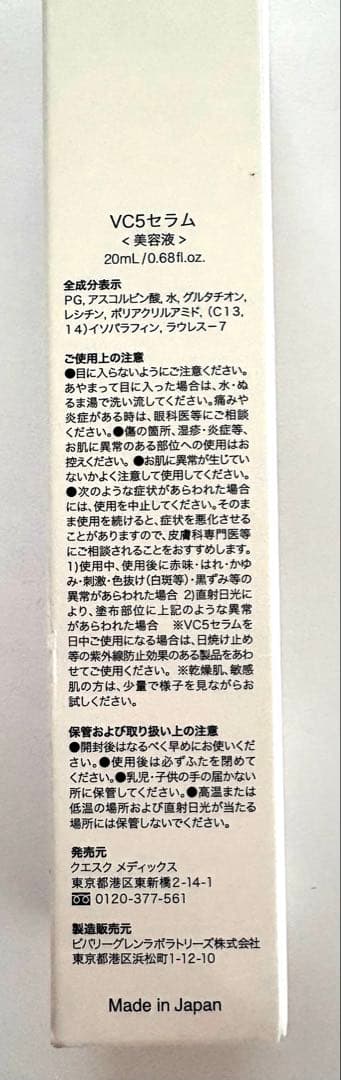 VC5セラム
＜美容液＞
20mL/0.68fl.oz.
全成分表示
PG, アスコルビン酸, 水, グルタチオン,
レシチン, ポリアクリルアミド, (C13,
14)イソパラフィン, ラウレス−7
ご使用上の注意
●目に入らないようにご注意ください。
あやまって目に入った場合は、水・ぬ
るま湯で洗い流してください。痛みや
炎症がある時は、眼科医等にご相談
ください。●傷の箇所、湿疹・炎症等、
お肌に異常のある部位への使用はお
控えください。●お肌に異常が生じてい
ないかよく注意して使用してください。
●次のような症状があらわれた場合
には、使用を中止してください。そのま
ま使用を続けると、症状を悪化させる
ことがありますので、皮膚科専門医等
にご相談されることをおすすめします。
1)使用中、使用後に赤味・はれ・かゆ
み・刺激・色抜け(白斑等)・黒ずみ等の
異常があらわれた場合 2)直射日光に
より、塗布部位に上記のような異常
があらわれた場合 ※VC5セラムを
日中ご使用になる場合は、日焼け止め
等の紫外線防止効果のある製品をあわ
せてご使用ください。※乾燥肌、敏感
肌の方は、少量で様子を見ながらお
試しください。
保管および取り扱い上の注意
●開封後はなるべく早めにお使いくだ
さい。●使用後は必ずふたを閉めてく
ださい。●乳児・子供の手の届かない
所に保管してください。●高温または
低温の場所および直射日光が当たる
場所には保管しないでください。
発売元
クエスク メディックス
東京都港区東新橋2-14-1
0120-377-561
製造販売元
ビバリーグレンラボラトリーズ株式会社
東京都港区浜松町1-12-10
Made in Japan